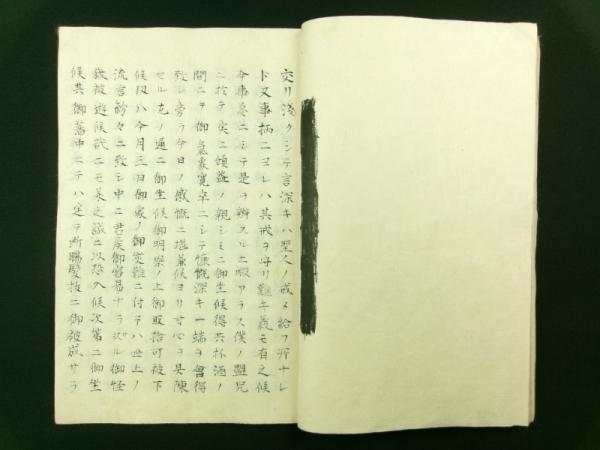 交リ淺クシテ言深キハ聖人ノ戒メ給フ所ナレ
ド又事柄ニヨレハ其戒ヲ守リ難キ義モ有之候
今事急ニシテ是ヲ辨スルニ暇アラス僕ノ盟兄
ニ於テ実ニ傾蓋ノ親シミニ御坐候得共杯酒ノ
間ニヲ御氣象寛卒ニシテ慷慨深キ一端ヲ會得
致シ旁ラ今日ノ感慨ニ堪兼候ヨリ寸心ヲ吳陳
セル左ノ通ニ御坐候御明察ノ上御取捨可被下
候扨ハ今月三日御家ノ御災難ニ付テハ世上ノ
流言紛々ニ致シ申ニ君侯御容易ナラザル御怪
我被遊候哉ニモ其之誠ニ以恐入候次第ニ御坐
候其御藩中ニテハ定テ断腸髪抜ニ御被成サラ